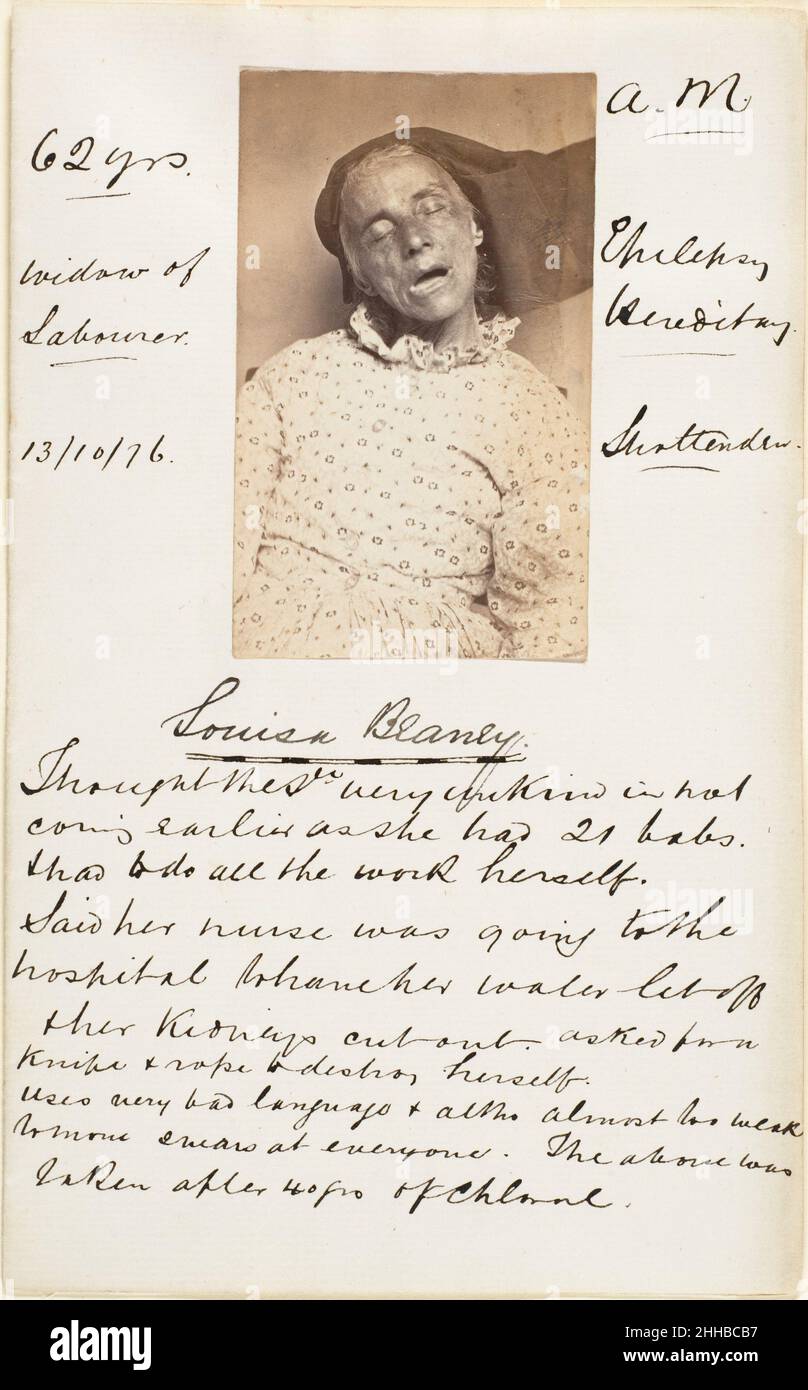 A. M.
62 yrs.
widow of
Labourer.
13/10/76.
Epilepsy
Hereditary.
Louisa Blaney.
Thought the Dr very unkind in not
coming earlier as she had 21 babs.
& had to do all the work herself.
Said her nurse was going to the
hospital to have her water let off
& her Kidneys cut out. asked for a
Knife & rope to destroy herself.
uses very bad language & altho almost too weak
to move swears at everyone. The above was
taken after 40 grs of chloral.
alamy
Image ID: 2HHBCB7
www.alamy.com